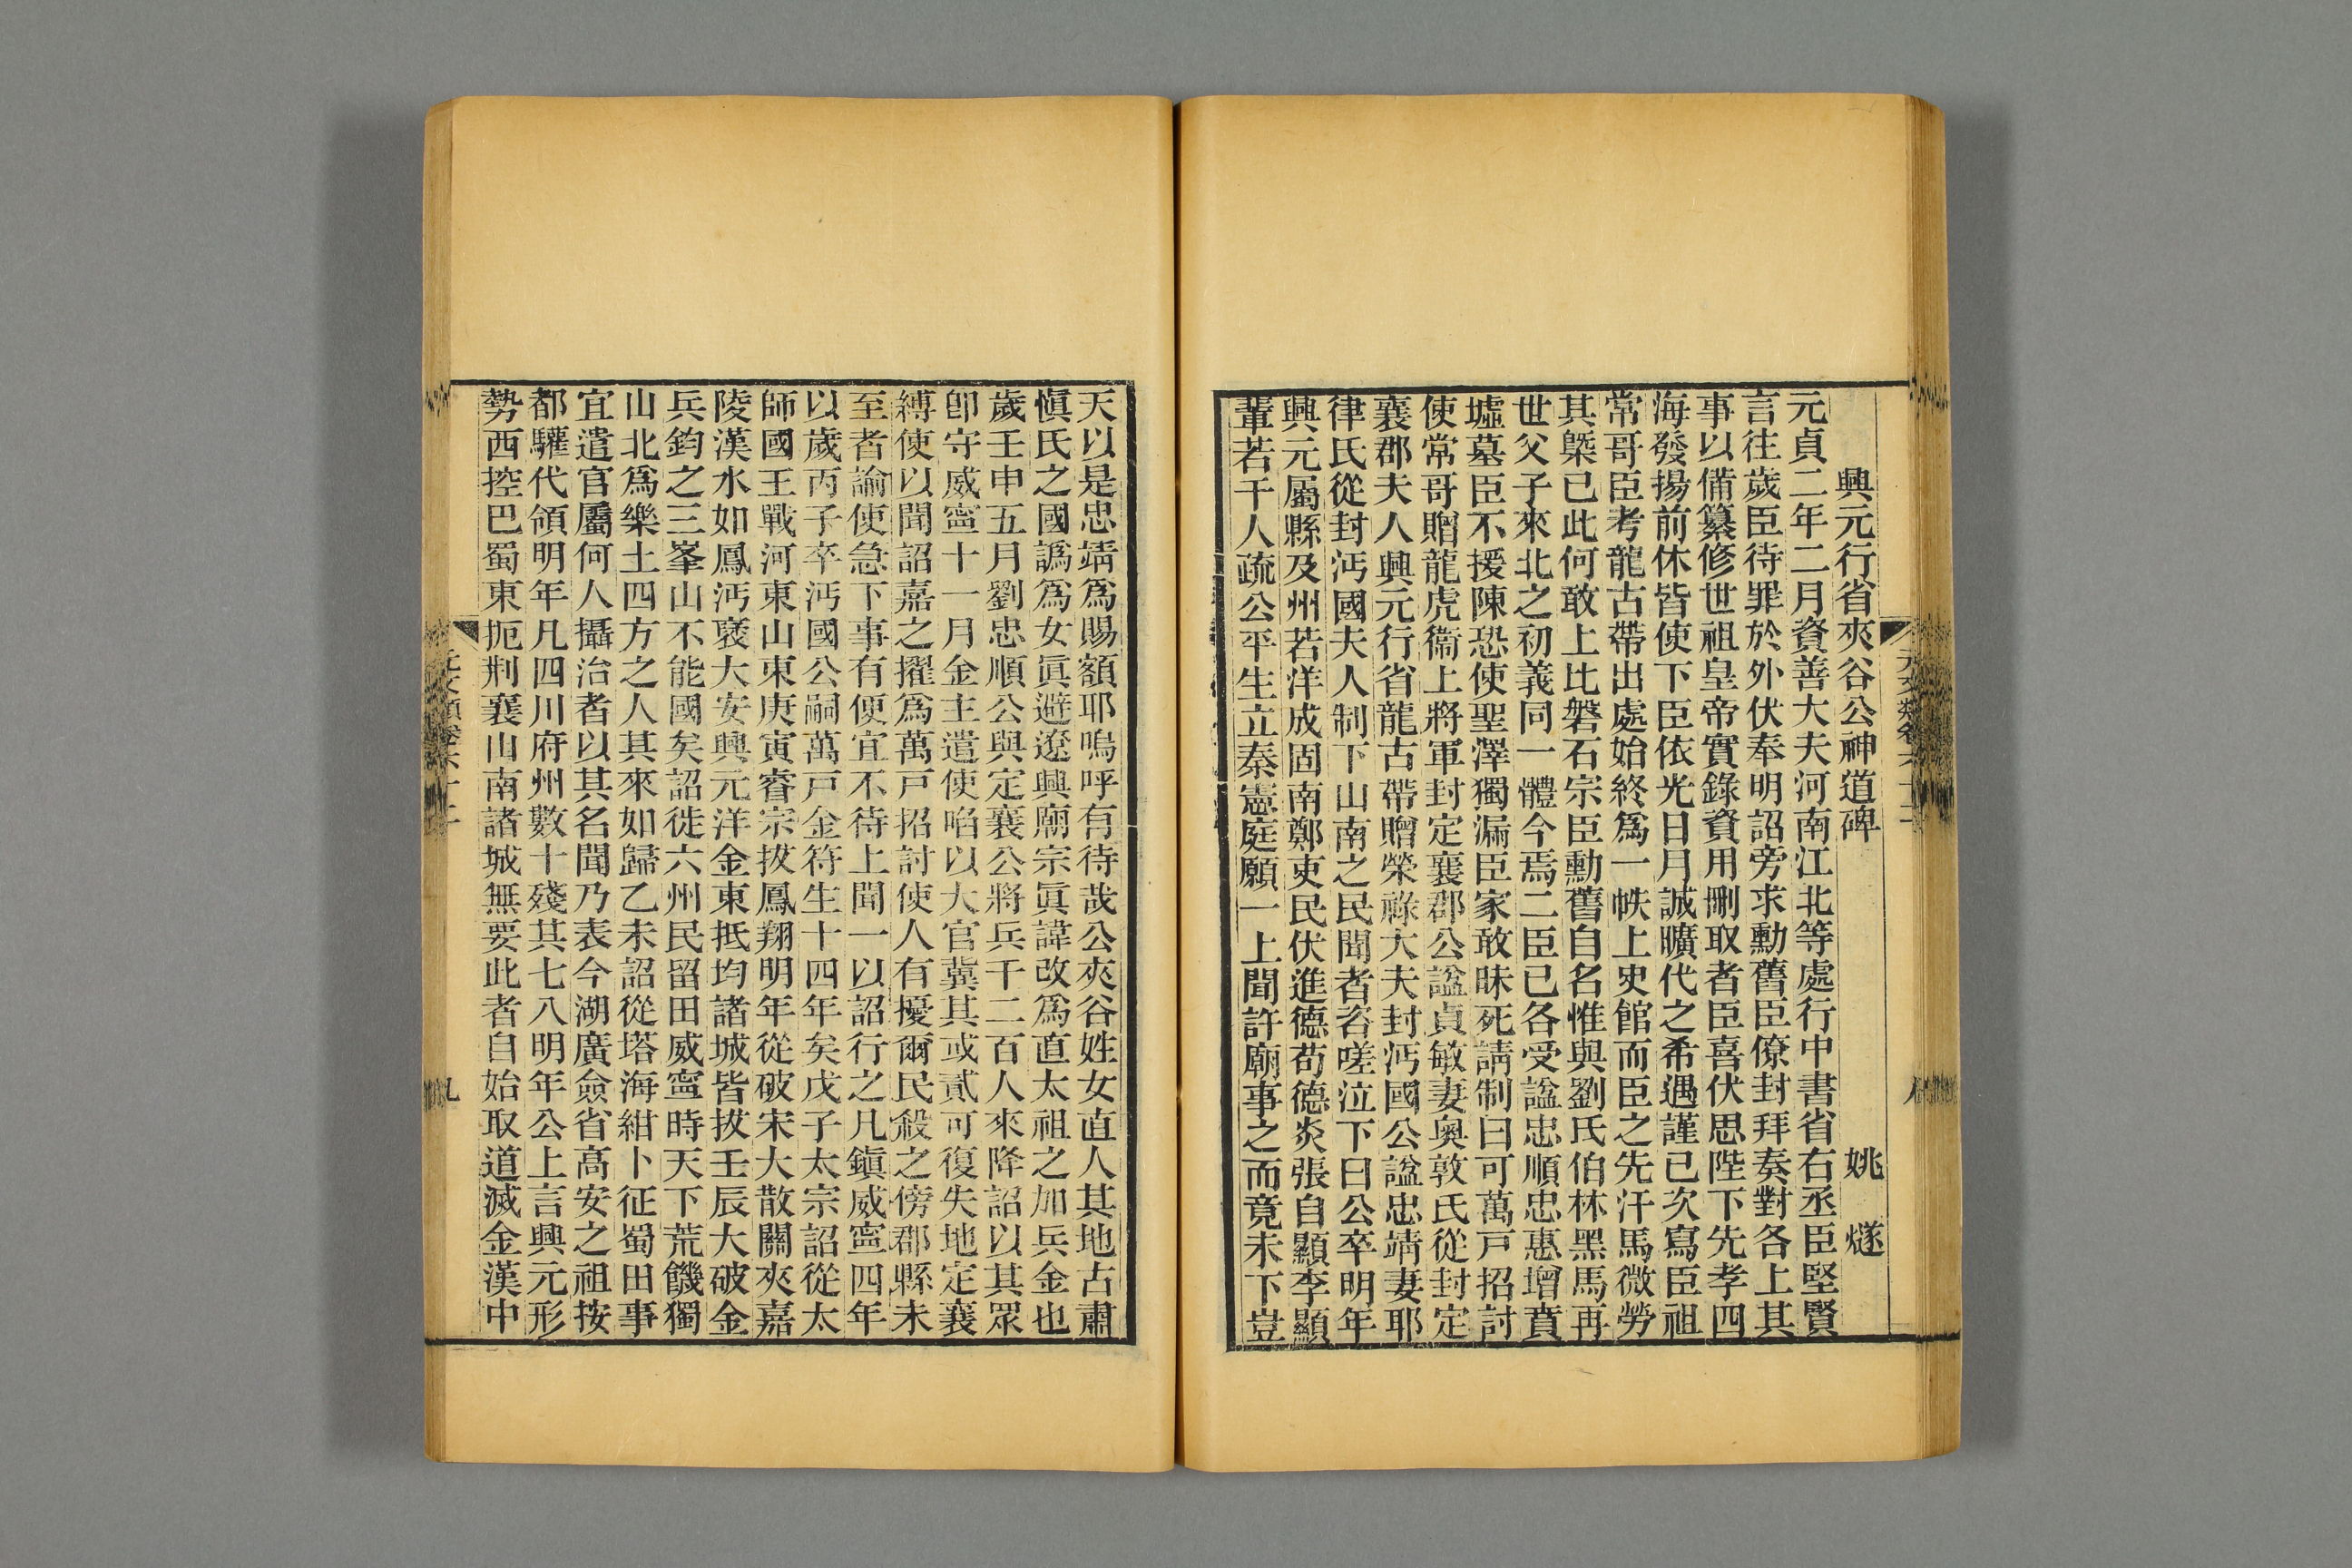 興元行省夾谷公神道碑　姚燧
元貞二年二月資善大夫河南江北等處行中書省右丞臣堅賢
言往歲臣待罪於外伏奉明詔旁求勳舊臣僚封拜奏對各上其
事以備纂修世祖皇帝實錄資用刪取者臣喜伏思陛下先孝四
海發揚前休皆使下臣依光日月誠曠代之希遇謹已次寫臣祖
常哥臣考龍古帶出處始終爲一帙上史館而臣之先汗馬微勞
其槩已此何敢上比磐石宗臣勳舊自名惟與劉氏伯林黑馬再
世父子來北之初義同一體今焉二臣已各受諡忠順忠惠增賁
墟墓臣不援陳恐使聖澤獨漏臣家敢昧死請制曰可萬戸招討
使常哥贈龍虎衞上將軍封定襄郡公諡貞敏妻奥敦氏從封定
襄郡夫人興元行省龍古帶贈榮祿大夫封沔國公諡忠靖妻耶
律氏從封沔國夫人制下山南之民聞者咨嗟泣下曰公卒明年
興元屬縣及州若洋成固南鄭吏民伏進德苟德炎張自顯李顯
輩若干人疏公平生立秦憲庭願一上聞許廟事之而竟未下豈
天以是忠靖爲賜額耶嗚呼有待哉公夾谷姓女直人其地古肅
愼氏之國譌爲女眞避遼興廟宗眞諱改爲直太祖之加兵金也
歲壬申五月劉忠順公與定襄公將兵千二百人來降詔以其眾
卽守威寧十一月金主遣使啗以大官冀其或貳可復失地定襄
縛使以聞詔嘉之擢爲萬戸招討使人有擾爾民殺之傍郡縣未
至者諭使急下事有便宜不待上聞一以詔行之凡鎭威寧四年
以歲丙子卒沔國公嗣萬戸金符生十四年矣戊子太宗詔從太
師國王戰河東山東庚寅睿宗拔鳳翔明年從破宋大散關夾嘉
陵漢水如鳳沔襃大安興元洋金東抵均諸城皆拔壬辰大破金
兵鈞之三峯山不能國矣詔徙六州民留田威寧時天下荒饑獨
山北爲樂土四方之人其來如歸乙未詔從塔海紺卜征蜀田事
宜遣官屬何人攝治者以其名聞乃表今湖廣僉省高安之祖按
都驩代領明年凡四川府州數十殘其七八明年公上言興元形
勢西控巴蜀東扼荆襄山南諸城無要此者自始取道滅金漢中